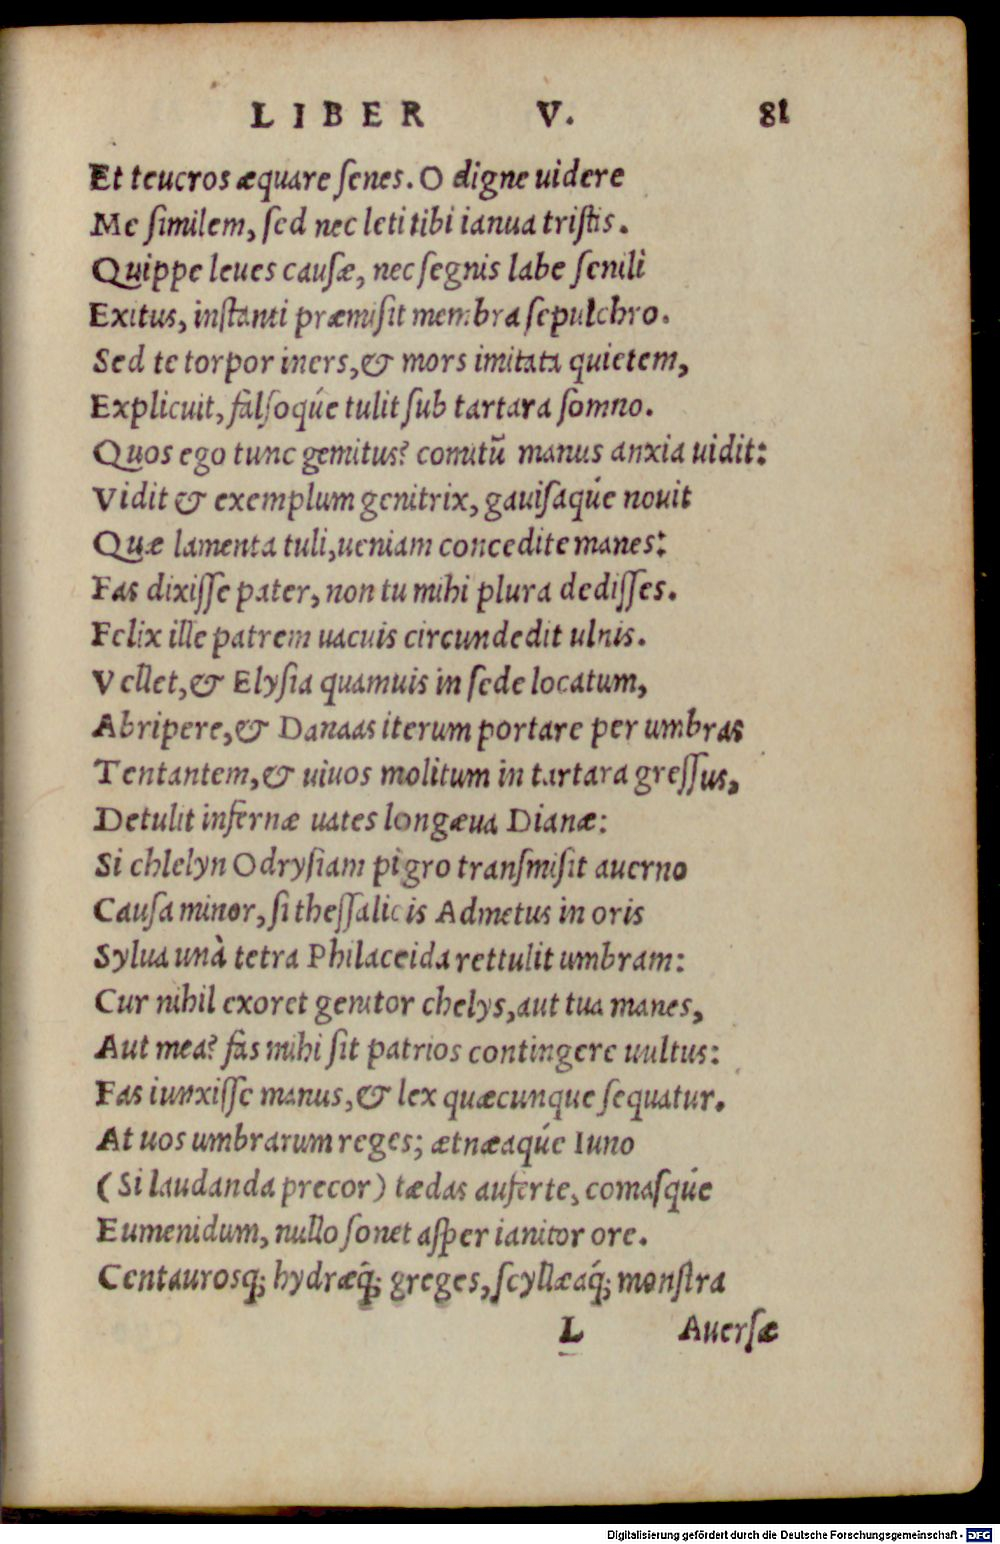 LIBER V. 81
Et teucros æquare ſenes. O digne uidere
Me ſimilem, ſed nec leti tibi ianua triſtis.
Quippe leues cauſæ, nec ſegnis labe ſenili
Exitus, inſtanti præmiſit membra ſepulchro.
Sed te torpor iners, & mors imitata quietem,
Explicuit, falſoqúe tulit ſub tartara ſomno.
Quos ego tunc gemitus? comitũ manus anxia uidit:
Vidit & exemplum genitrix, gauiſaqúe nouit
Quæ lamenta tuli, ueniam concedite manes:
Fas dixiſſe pater, non tu mihi plura dediſſes.
Felix ille patrem uacuis circundedit ulnis.
Vellet, & Elyſia quamuis in ſede locatum,
Abripere, & Danaas iterum portare per umbras
Tentantem, & uiuos molitum in tartara greſſus,
Detulit infernæ uates longæua Dianæ:
Si chlelyn Odryſiam pigro tranſmiſit auerno
Cauſa minor, ſi theſſalicis Admetus in oris
Sylua unà tetra Philaceida rettulit umbram:
Cur nihil exoret genitor chelys, aut tua manes,
Aut mea? fas mihi ſit patrios contingere uultus:
Fas iunxiſſe manus, & lex quæcunque ſequatur.
At uos umbrarum reges; ætnæaqúe Iuno
(Si laudanda precor) tædas auferte, comaſqúe
Eumenidum, nullo ſonet aſper ianitor ore.
Centaurosq́; hydræq́; greges, ſcyllæaq́; monſtra
L Auerſæ
Digitalisierung gefördert durch die Deutsche Forschungsgemeinschaft - DFG